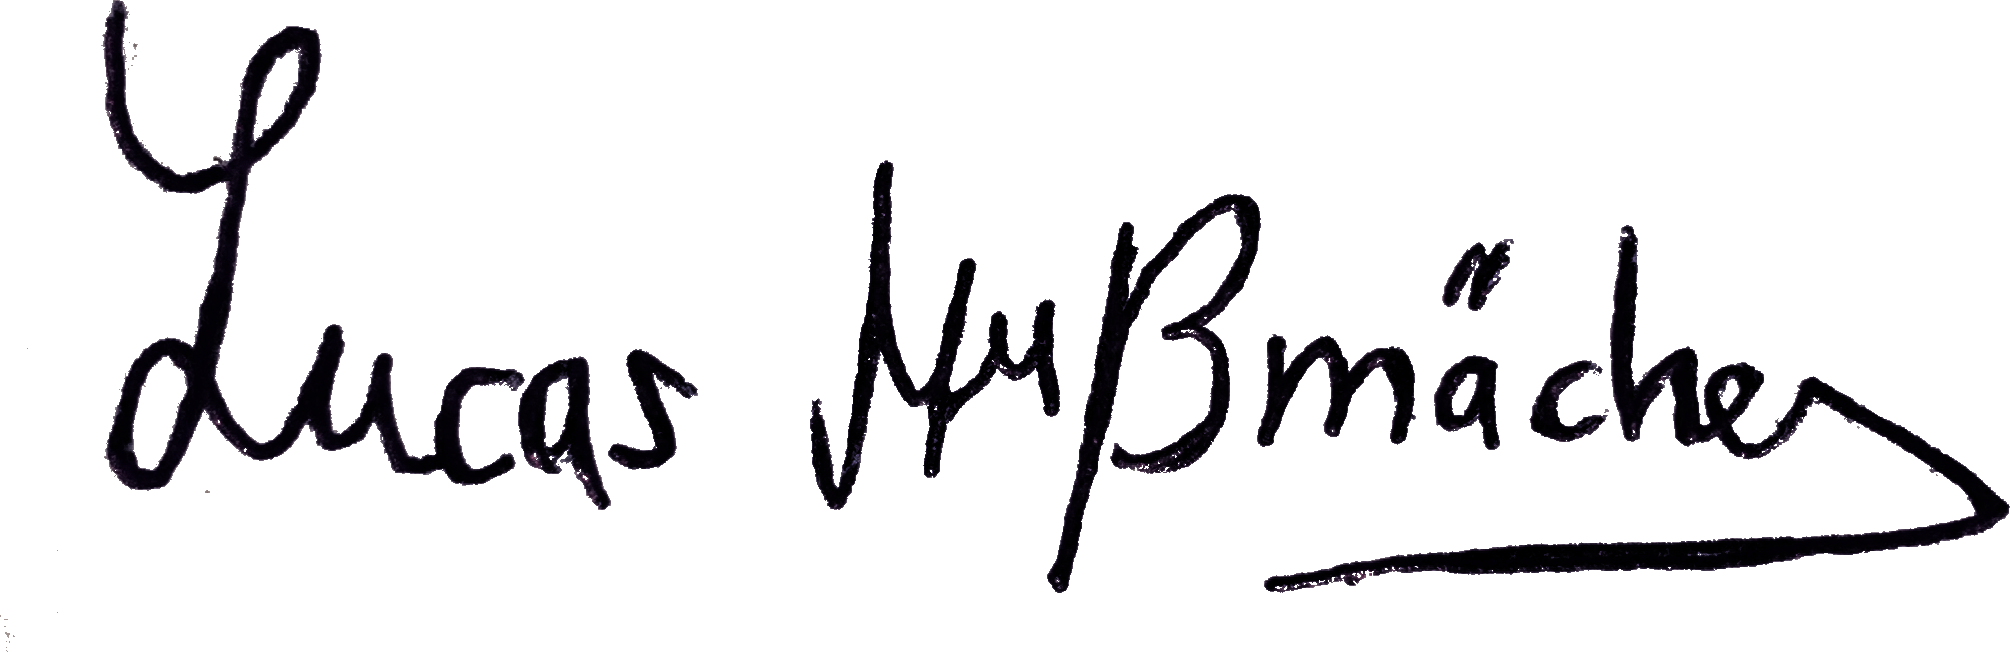 Lucas Nußmächer